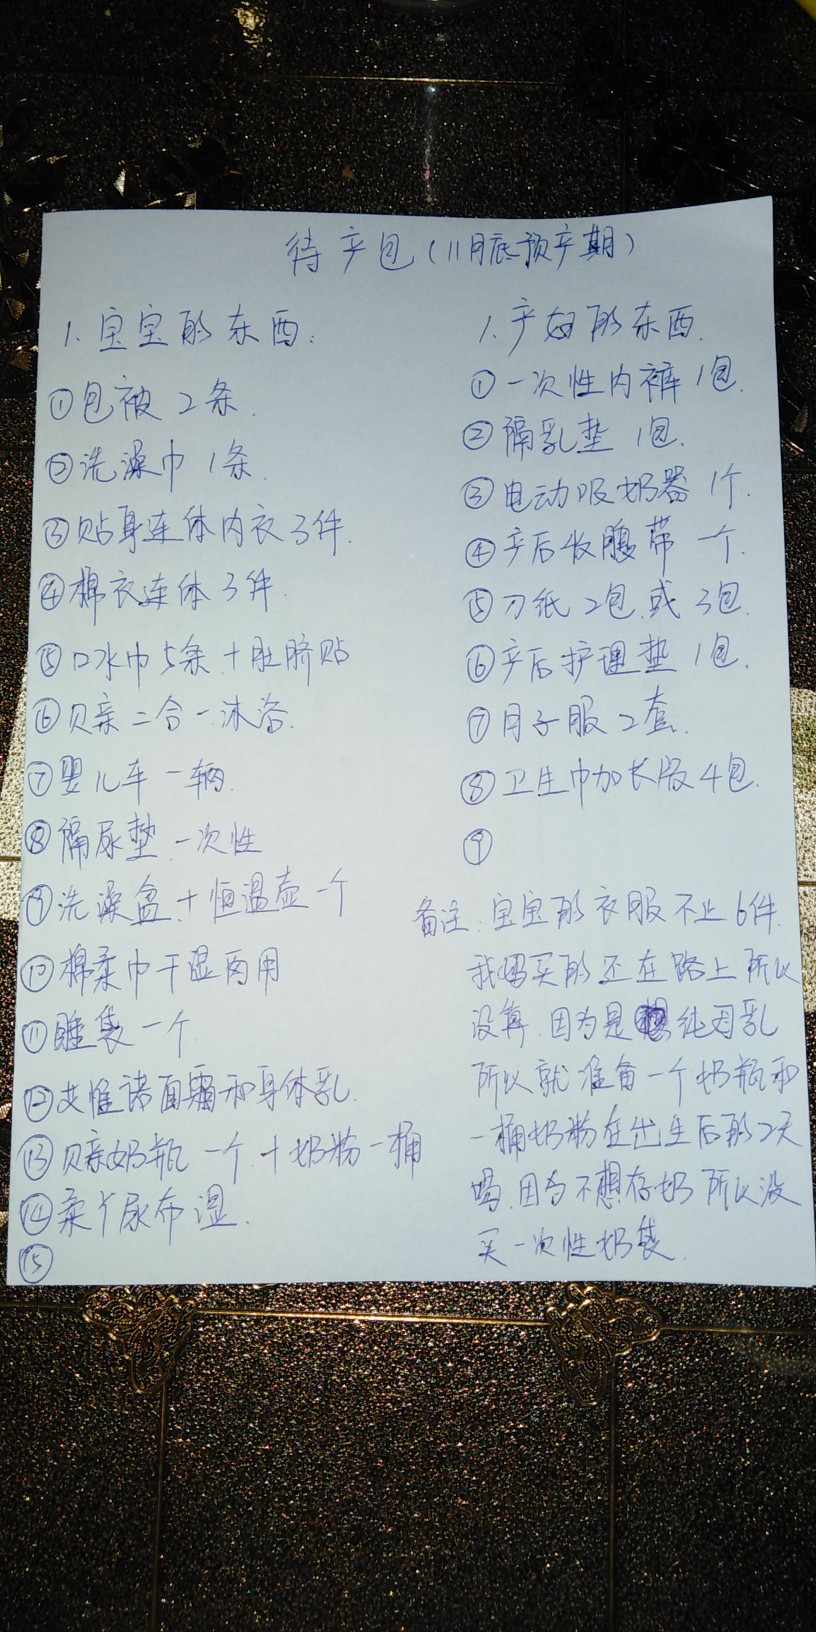 待产包(11月底预产期)
1.宝宝的东西:
①包被2条.
②洗澡巾1条.
③贴身连体内衣3件.
④棉衣连体3件.
⑤口水巾5条+肚脐贴
⑥贝亲二合一沐浴.
⑦婴儿车一辆.
⑧隔尿垫.一次性
⑨洗澡盆+恒温壶一个
⑩棉柔巾干湿两用
⑪睡袋一个
⑫艾惟诺面霜和身体乳.
⑬贝亲奶瓶一个.+奶粉一桶
⑭柔丫尿布湿.
⑮
1.产妇的东西.
①一次性内裤1包.
②隔乳垫1包.
③电动吸奶器1个.
④产后收腹带一个.
⑤刀纸2包或3包.
⑥产后护理垫1包.
⑦月子服2套.
⑧卫生巾加长版4包.
⑨
备注.宝宝的衣服不止6件.
我妈买的还在路上所以
没算.因为是纯母乳
所以就准备一个奶瓶和
一桶奶粉在出生后的2天
喝.因为不想存奶所以没
买一次性奶袋.